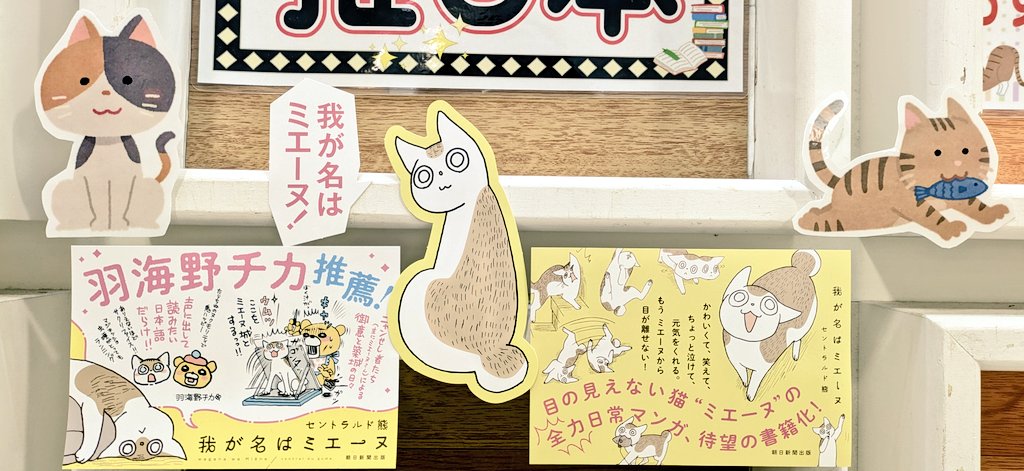 推し本
我が名は
ミエーヌ!
羽海野チカ推薦!
声に出して
読みたい
日本語
だらけ!!
ここを
ミエーヌ城と
するっ!!
羽海野チカ
セントラルド熊
我が名はミエーヌ
朝日新聞出版
我が名はミエーヌ
セントラルド熊
かわいくて、笑えて、
ちょっと泣けて、
元気をくれる。
もうミエーヌから
目が離せない!
目の見えない猫“ミエーヌ”の
全力日常マンガ、待望の書籍化!
朝日新聞出版